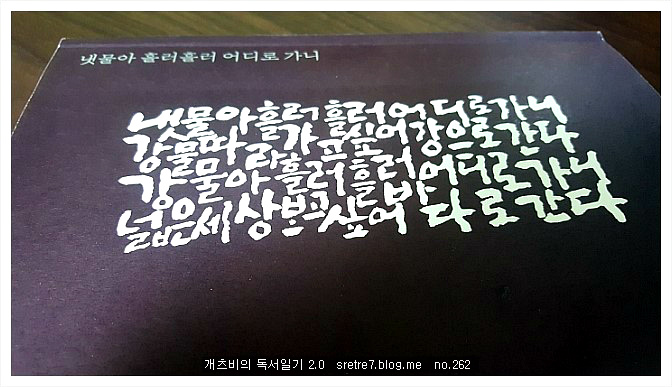 냇물아 흘러흘러 어디로 가니
냇물아 흘러 흘러 어디로 가니
강물따라 가고 싶어 강으로 간다
강물아 흘러 흘러 어디로 가니
넓은 세상 보고 싶어 바다로 간다
개츠비의 독서일기 2.0 sretre7.blog.me no.262